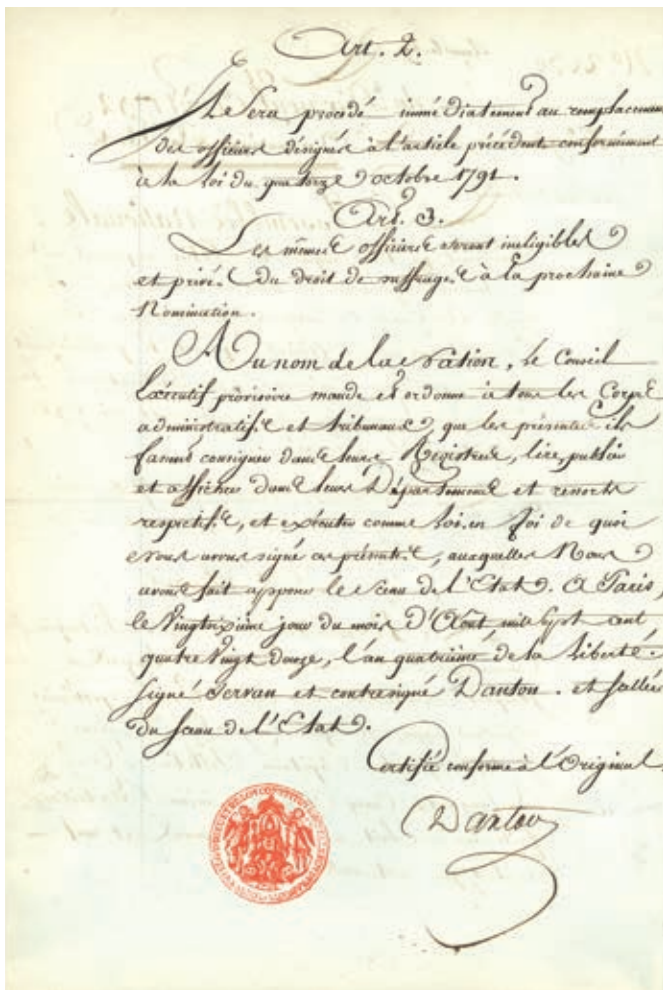 Art. 2.
Il Sera procédé immédiatement au remplacement
des officiers désignés à l'article précédent conformément
à la loi du quatorze octobre 1791.
Art. 3.
Les mêmes officiers seront inéligibles
et privés du droit de suffrage à la prochaine
Nomination.
Au nom de la Nation, le Conseil
Exécutif provisoire mande et ordonne à tous les Corps
administratifs et tribunaux que les présentes ils
fassent consigner dans leurs Registres, lire, publier
et afficher dans leurs Départemens et ressorts
respectifs, et exécuter comme Loi. en foi de quoi
Nous avons signé ces présentes, auxquelles Nous
avons fait apposer le Sceau de l'Etat. A Paris,
le Vingt jour du mois d'Août, mil sept cent
quatre Vingt douze, l'an quatrième de la Liberté.
signé Servan et contresigné Danton. et scellées
du Sceau de l'Etat.
Certifié conforme à l'Original.
Danton